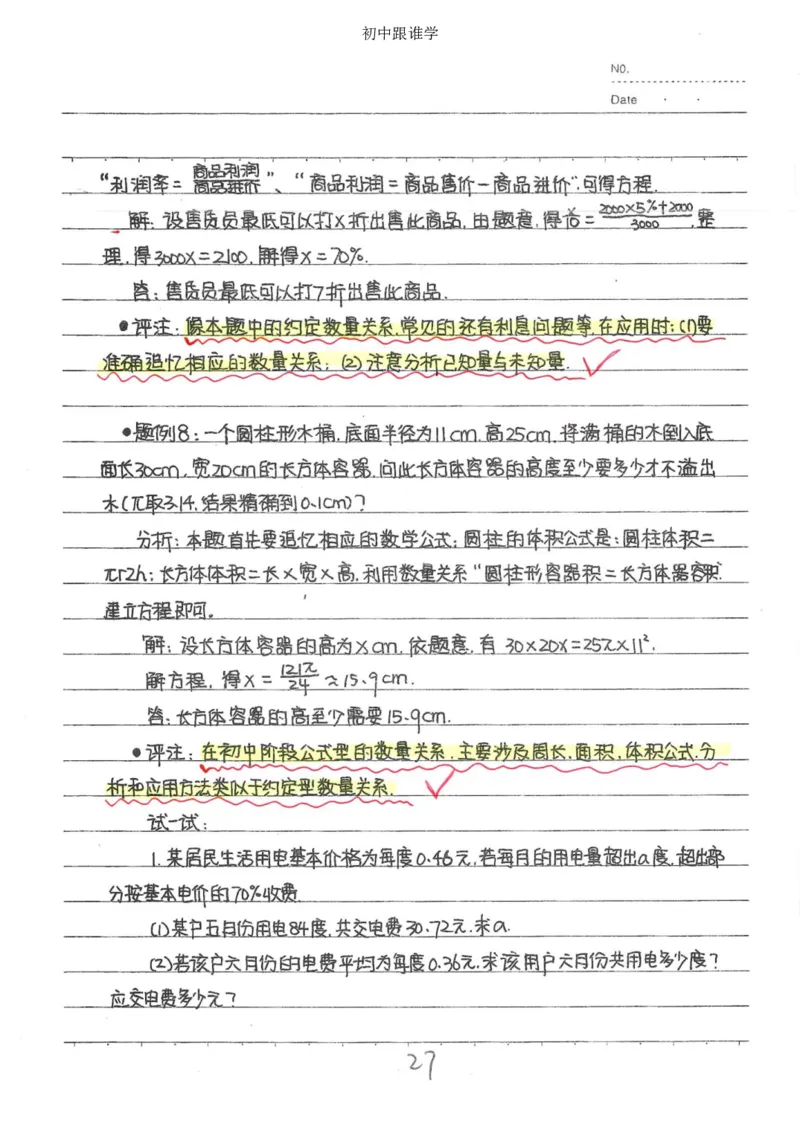 初中跟谁学
NO.
Date · ·
“利润率=商品利润/商品进价”、“商品利润=商品售价-商品进价”,可得方程.
解:设售货员最低可以打x折出售此商品,由题意,得 = 2000×5%+2000/3000,整
理,得3000x=2100,解得x=70%.
答:售货员最低可以打7折出售此商品.
•评注:像本题中的约定数量关系,常见的还有利息问题等,在应用时:(1)要
准确追忆相应的数量关系;(2)注意分析已知量与未知量.
•题例8:一个圆柱形木桶,底面半径为11cm,高25cm,将满桶的水倒入底
面长30cm,宽20cm的长方体容器,问此长方体容器的高度至少要多少才不溢出
水(π取3.14,结果精确到0.1cm)?
分析:本题首先要追忆相应的数学公式;圆柱的体积公式是:圆柱体积=
πr2h;长方体体积=长×宽×高,利用数量关系“圆柱形容器积=长方体器容积.
建立方程即可。
解:设长方体容器的高为xcm,依题意,有 30×20x=25π×11².
解方程,得x=121π/24≈15.9cm.
答:长方体容器的高至少需要15.9cm.
•评注:在初中阶段公式型的数量关系,主要涉及周长,面积,体积公式,分
析和应用方法类似于约定型数量关系.
试一试:
1.某居民生活用电基本价格为每度0.46元,若每月的用电量超出a度,超出部
分按基本电价的70%收费.
(1)某户五月份用电84度,共交电费30.72元,求a.
(2)若该户六月份的电费平均为每度0.36元,求该用户六月份共用电多少度?
应交电费多少元?
27